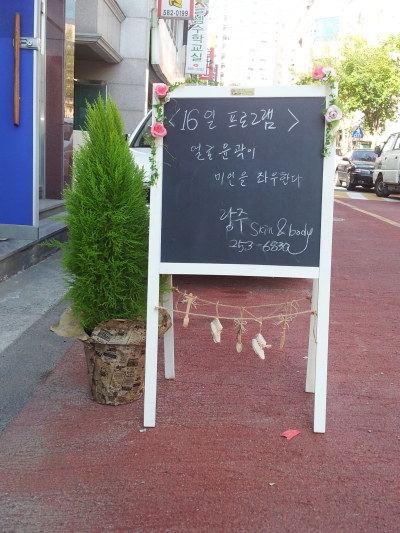 582-0199
수학교실
<16일 프로그램>
얼굴윤곽이
미인을 좌우한다
광주 Skin & body
253-6830